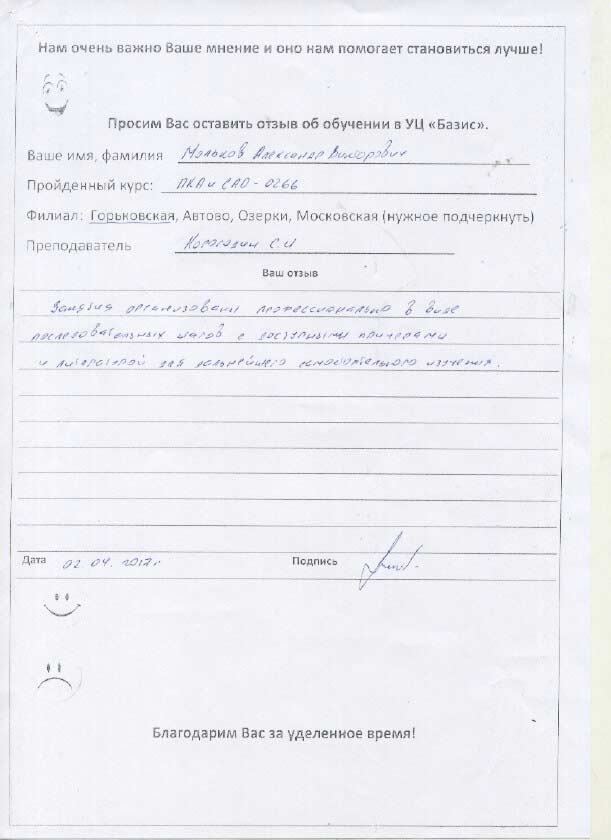 Нам очень важно Ваше мнение и оно нам помогает становиться лучше!
Просим Вас оставить отзыв об обучении в УЦ «Базис».
Ваше имя, фамилия Мальков Александр Викторович
Пройденный курс: ПКАиСАО-0266
Филиал: Горьковская, Автово, Озерки, Московская (нужное подчеркнуть)
Преподаватель С.И
Ваш отзыв
Занятия организованы профессионально в виде
последовательных шагов с доступными примерами
и литературой для дальнейшего самостоятельного изучения.
Дата 02 04. 2012г Подпись
Благодарим Вас за уделенное время!